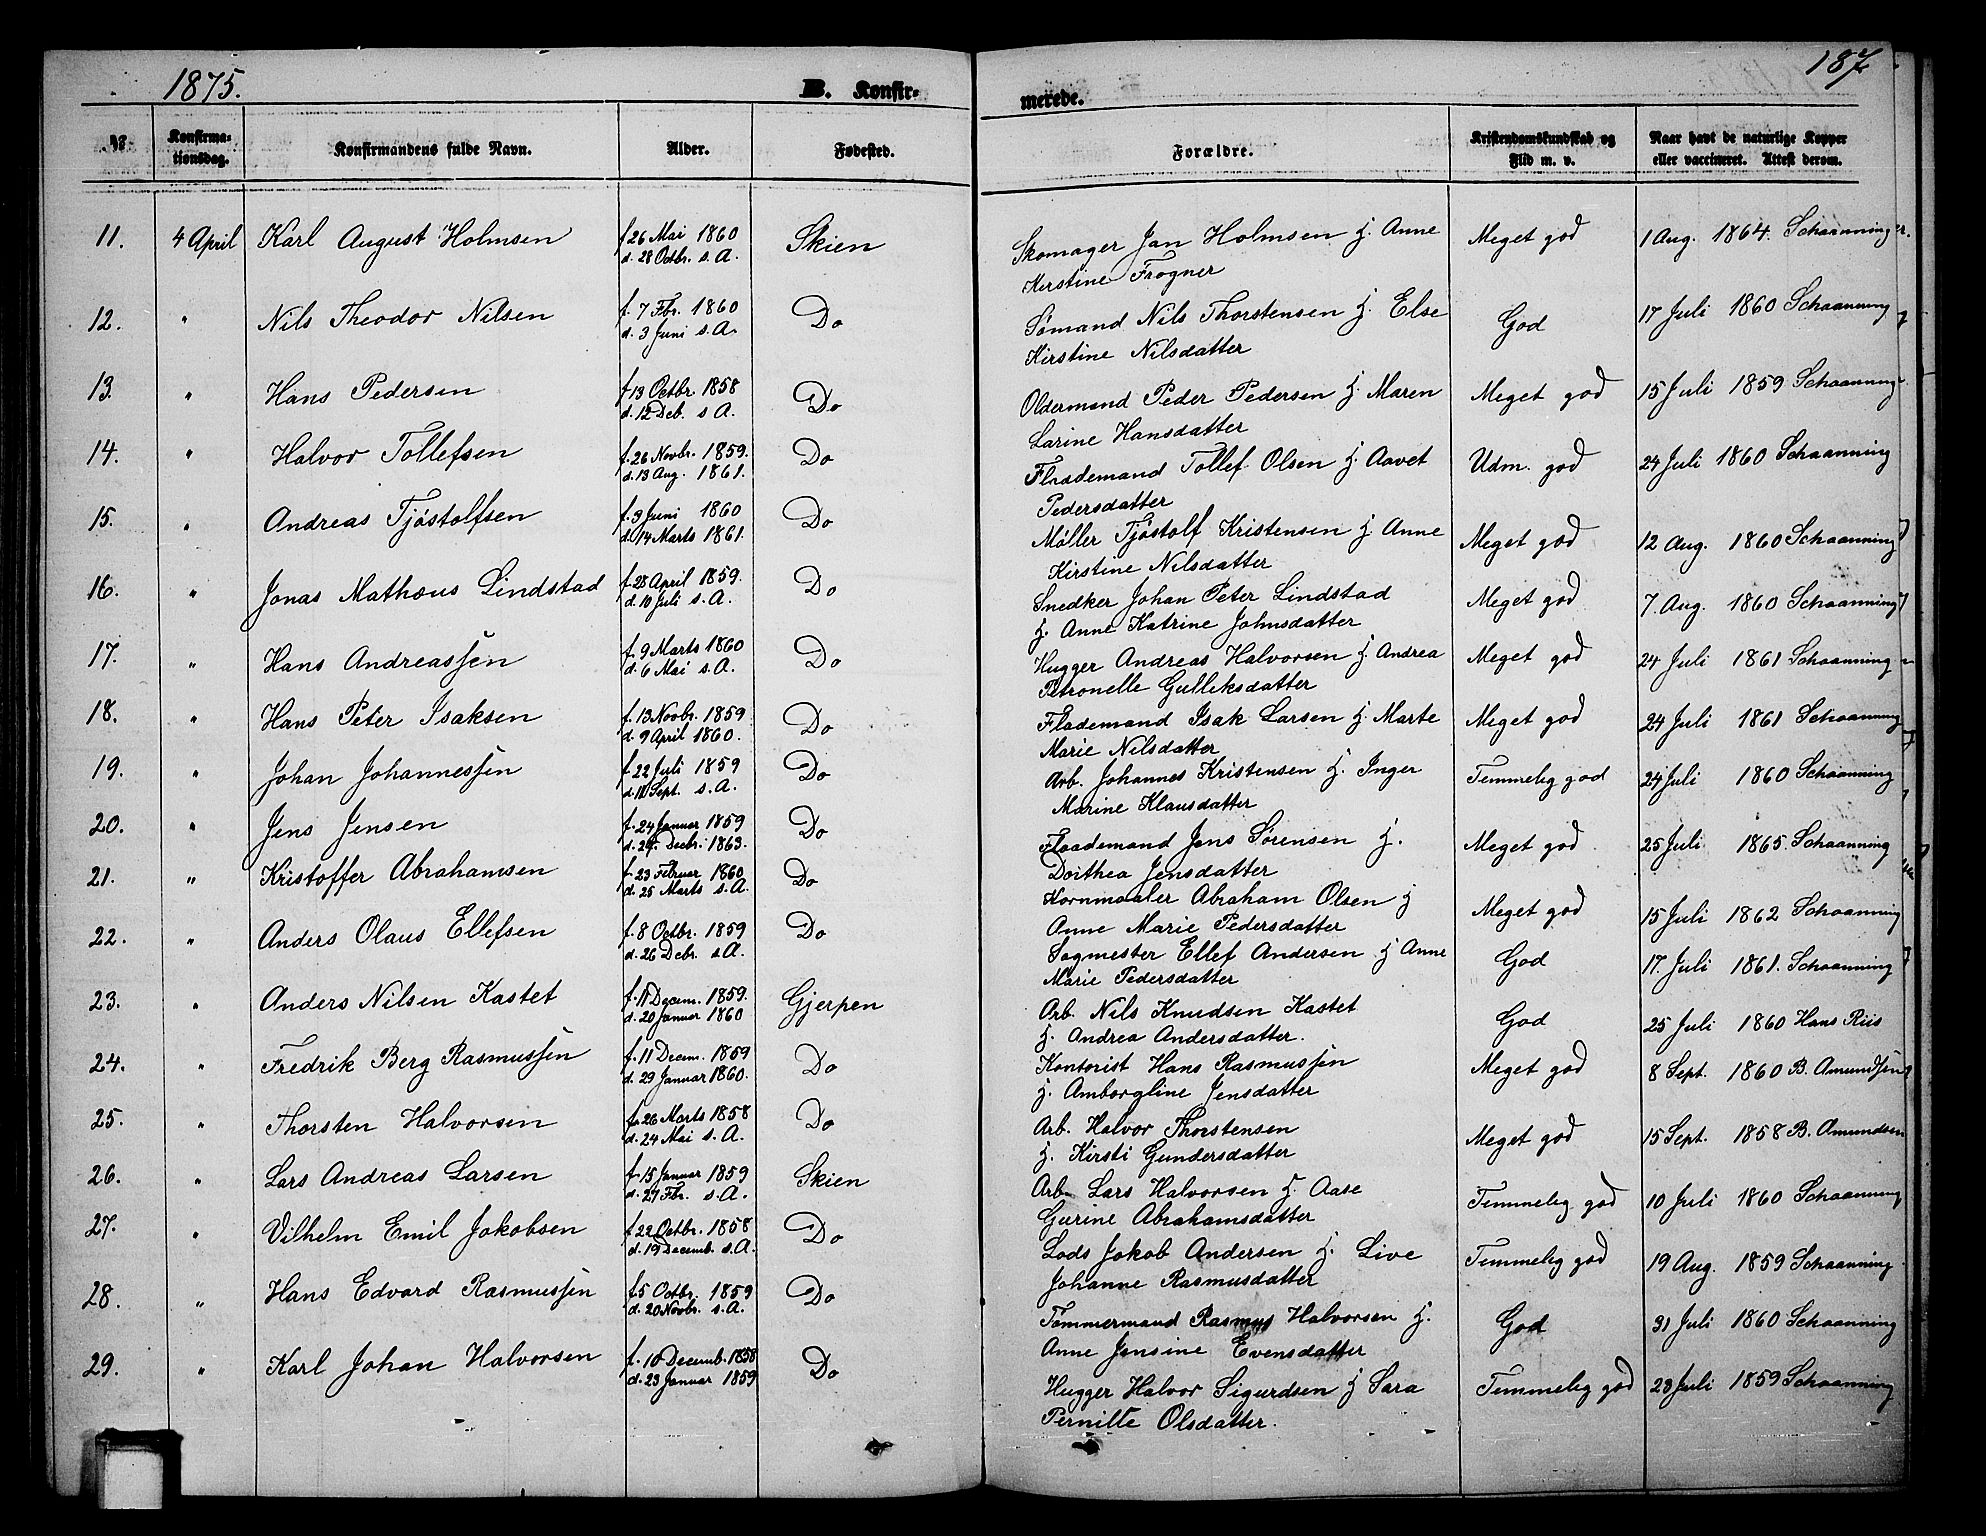 1875.
B. Konfir-
merede.
187
№
Konfirma-
tionsdag.
Konfirmandens fulde Navn.
Alder.
Fødested.
Forældre.
Kristendomskundskab og
Flid m. v.
Naar havt de naturlige Kopper
eller vaccineret. Attest derom.
11. 4 April Karl August Holmsen f. 26 Mai 1860 Skien Skomager Jan Holmsen H. Anne Meget god 1 Aug. 1864. Schaanning
d. 28 Octbr. s. A. Kerstine Frogner
12. " Nils Theodor Nilsen f. 7 Fbr. 1860 Do Sømand Nils Thorstensen H. Else God 17 Juli 1860 Schaanning
d. 3 Juni s. A. Kirstine Nilsdatter
13. " Hans Pedersen f. 13 Octbr. 1858 Do Oldermand Peder Pedersen H. Maren Meget god 15 Juli 1859 Schaanning
d. 12 Deb. s A. Larine Hansdatter
14. " Halvor Tollefsen f. 26 Novbr. 1859. Do Flaademand Tollef Olsen H. Aavet Udm. god 24 Juli 1860 Schaanning
d. 13 Aug. 1861. Pedersdatter
15. " Andreas Tjøstolfsen f. 9 Juni 1860 Do Møller Tjøstolf Kristensen H. Anne Meget god 12 Aug. 1860 Schaanning
d. 14 Marts 1861. Kirstine Nilsdatter
16. " Jonas Mathæus Lindstad f. 28 April 1859. Do Snedker Johan Peter Lindstad Meget god 7. Aug. 1860 Schaanning
d. 10 Juli s. A. H. Anne Katrine Johnsdatter
17. " Hans Andreassen f. 9 Marts 1860 Do Hugger Andreas Halvorsen H. Andrea Meget god 24 Juli 1861 Schaanning
d. 6 Mai s. A. Petronelle Gulliksdatter
18. " Hans Peter Isaksen f. 13 Novbr. 1859 Do Flademand Isak Larsen H. Marte Meget god 24 Juli 1861 Schaanning
d. 9 April 1860. Marie Nilsdatter
19. " Johan Johannessen f. 22 Juli 1859 Do Arb. Johannes Kristensen H. Inger Temmelig god 24 Juli 1860 Schaanning
d. 18 Sept. s. A. Marine Klausdatter
20. " Jens Jensen f. 24 Januar 1859 Do Flaademand Jens Sørensen H. Meget god 25 Juli 1865. Schaanning
d. 24. Decbr. 1863. Dorthea Jensdatter
21. " Kristoffer Abrahamsen f. 23 Februar 1860 Do Kornmaaler Abraham Olsen H Meget god 15 Juli 1862 Schaanning
d. 25 Marts s. A. Anne Marie Pedersdatter
22. " Anders Olaus Ellefsen f. 8 Octbr. 1859 Do Sagmester Ellef Andersen H Anne God 17. Juli 1861. Schaanning
d. 26 Debr. s A. Marie Pedersdatter
23. " Anders Nilsen Kastet f. 11 Decem. 1859. Gjerpen Arb. Nils Knudsen Kastet God 25 Juli 1860 Hans Riis
d. 20 Januar 1860 H. Andrea Andersdatter.
24. " Fredrik Berg Rasmussen f. 11 Decem. 1859 Do Kontorist Hans Rasmussen Meget god 8 Sept. 1860 B. Amundsen
d. 29 Januar 1860. H. Amborgline Jensdatter
25. " Thorsten Halvorsen f. 26 Marts 1858 Do Arb. Halvor Thorstensen Meget god 15 Sept. 1858 B. Amundsen
d. 24 Mai s. A. H. Kirsti Gundersdatter
26. " Lars Andreas Larsen f. 15 Januar 1859 Skien Arb. Lars Halvorsen H. Aase Temmelig god 10 Juli 1860 Schaanning
d. 27 Fbr. s. A. Gurine Abrahamsdatter
27. " Vilhelm Emil Jokobsen f. 22 Octbr. 1858 Do Lods Jokob Andersen H. Live Temmelig god 19 Aug. 1859 Schaanning
d. 19 Decemb. s. A. Johanne Rasmusdatter
28. " Hans Edvard Rasmussen f. 5 Octbr. 1859 Do Tømmermand Rasmus Halvorsen H. God 31 Juli 1860 Schaanning
d. 20 Novbr. s. A. Anne Jensine Evensdatter
29. " Karl Johan Halvorsen f. 10 Decemb. 1858 Do Hugger Halvor Sigurdsen H Sara Temmelig god 23 Juli 1859 Schaanning
d. 23 Januar 1859 Pernille Olsdatter.